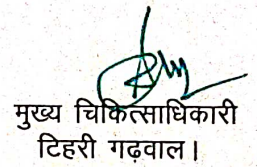 मुख्य चिकित्साधिकारी
टिहरी गढ़वाल।